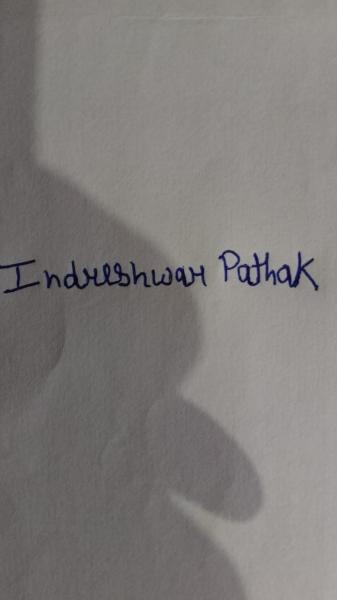 Indreshwar Pathak